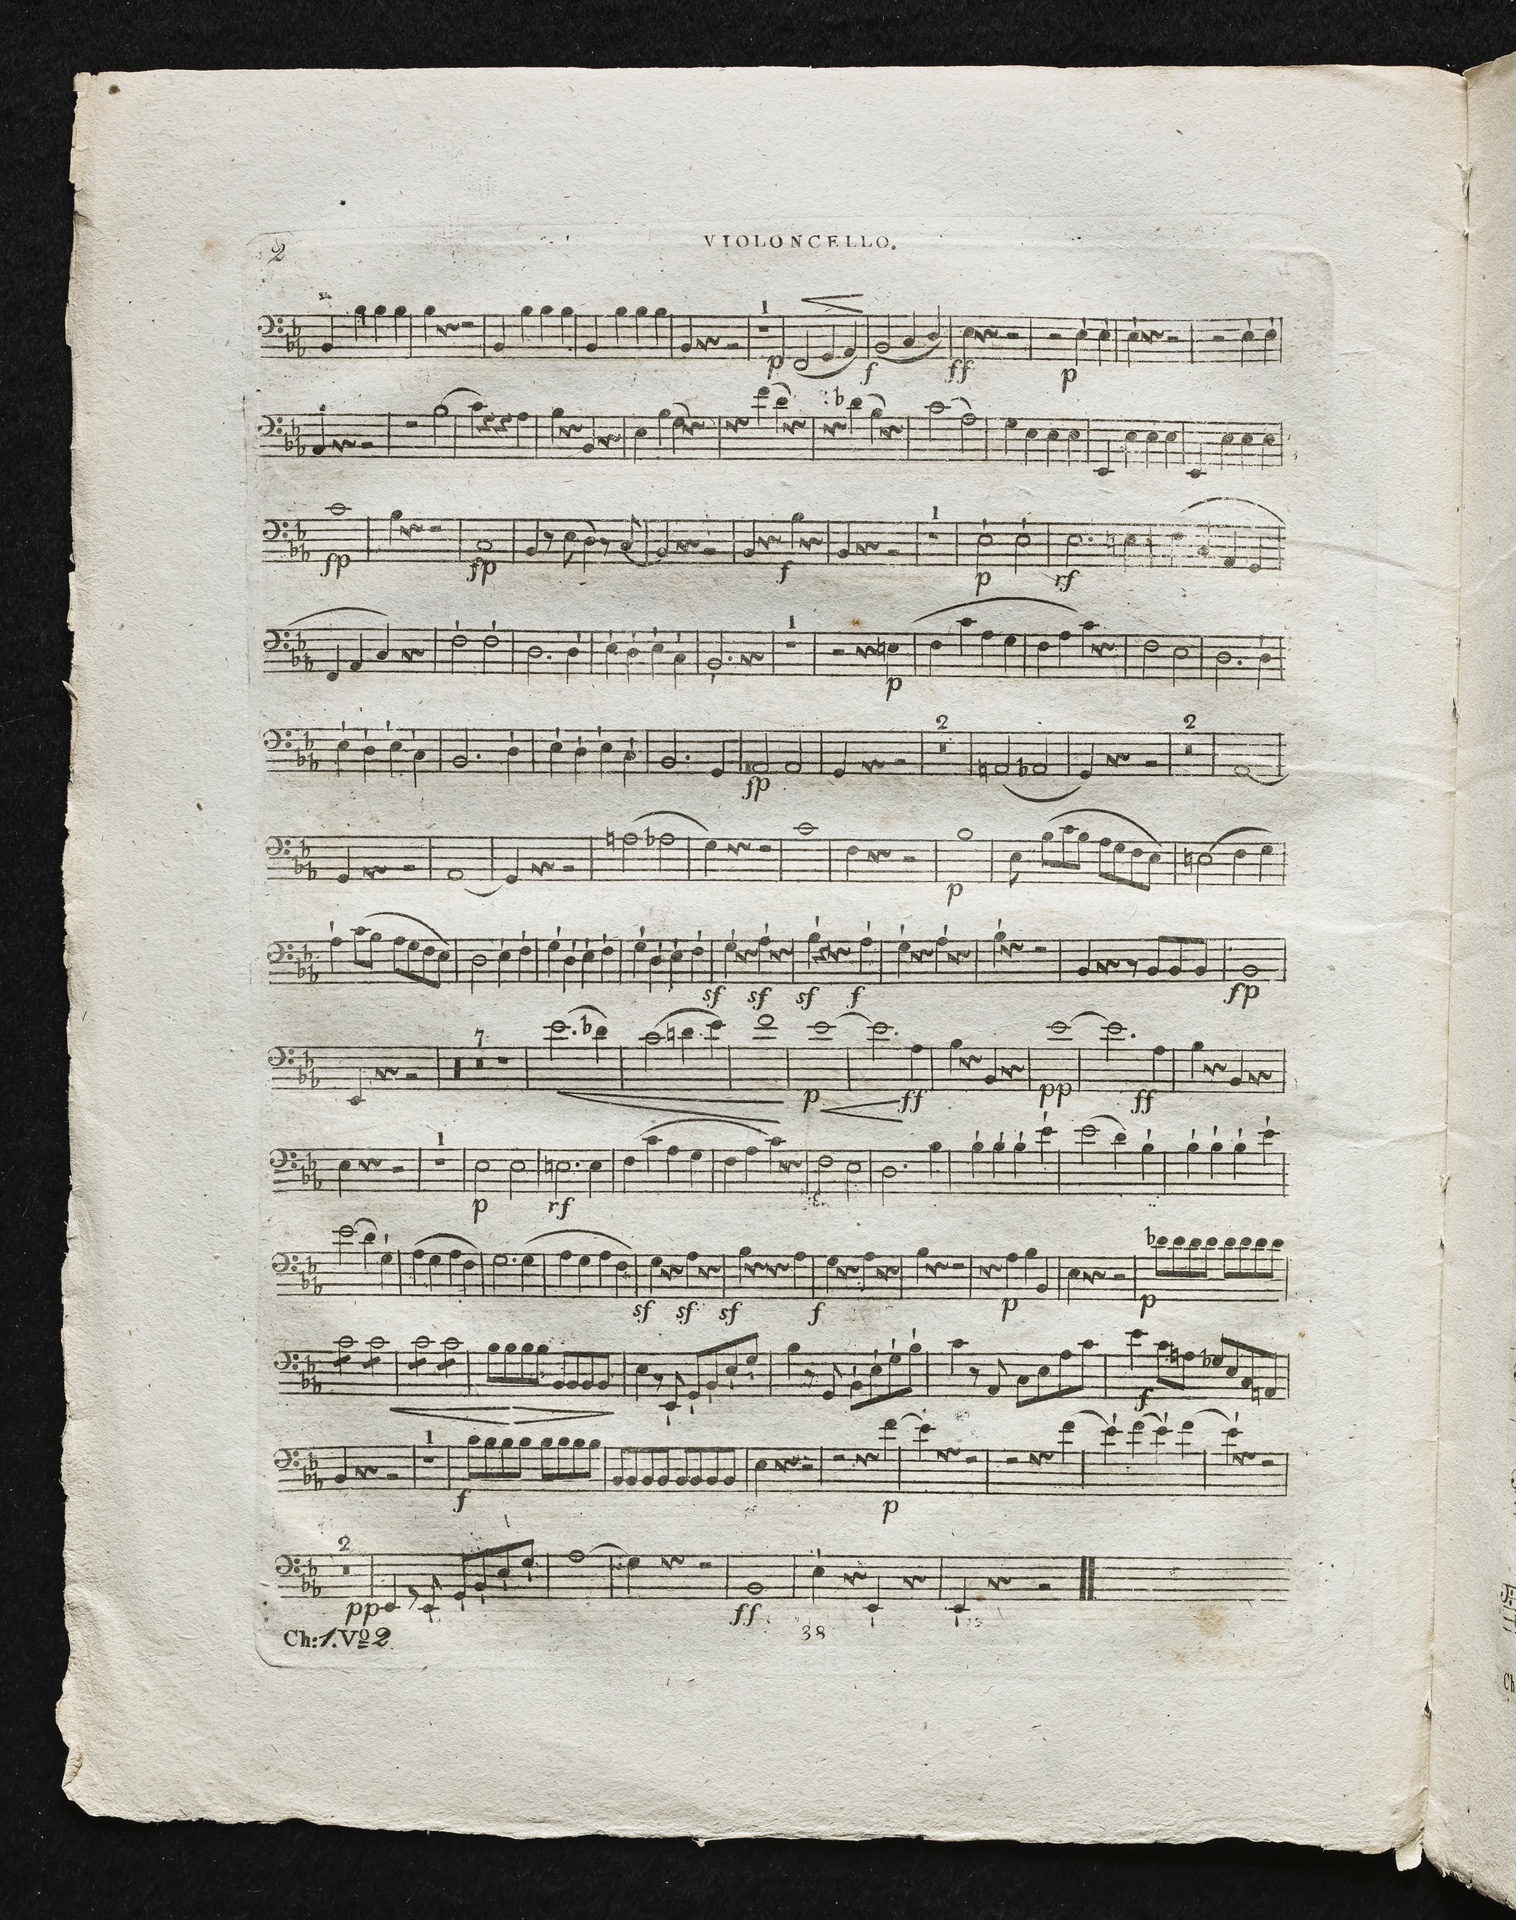 2
VIOLONCELLO.
1
p f ff p
fp fp f 1 p rf
1 p
fp 2 2
p
sf sf sf f fp
7 p ff pp ff
1 p rf
sf sf sf f p p
f
1 f p
2 pp ff
Ch:1.Vº2 38